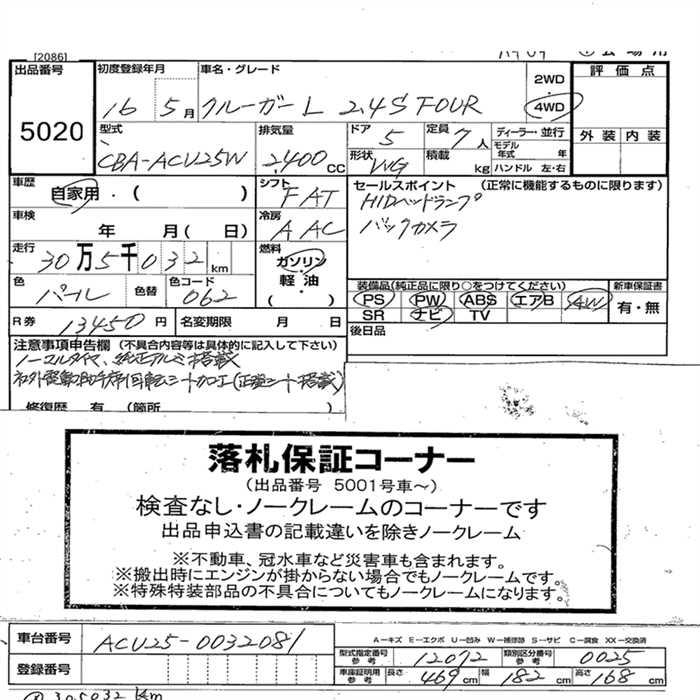 [2086]
出品番号 5020
初度登録年月 16 5月
車名・グレード クルーガーL 2.4S FOUR
2WD
4WD
評価点
外装 内装
型式 CBA-ACU25W
排気量 2,400 CC
ドア 5
定員 7人
ディーラー・並行
モデル年式 年
形状 WG
積載 kg
ハンドル 左・右
車歴 自家用・( )
シフト FAT
セールスポイント (正常に機能するものに限ります)
HIDヘッドランプ
バックカメラ
車検 年 月( 日)
冷房 AAC
走行 30万5千032km
燃料 ガソリン
軽油
( )
色 パール 色替
色コード 062
装備品(純正品に限り○をつけてください)
PS PW ABS エアB AW
SR ナビ TV
新車保証書
有・無
R券 13450円
名変期限 月 日
後日品
注意事項申告欄 (不具合内容等は具体的に記入して下さい)
ノーマルタイヤ、純正アルミ搭載
社外電動助手席回転シート加工(正規シート搭載)
修復歴 有 (箇所 )
落札保証コーナー
(出品番号 5001号車～)
検査なし・ノークレームのコーナーです
出品申込書の記載違いを除きノークレーム
※不動車、冠水車など災害車も含まれます。
※搬出時にエンジンが掛からない場合でもノークレームです。
※特殊特装部品の不具合についてもノークレームになります。
車台番号 ACU25-0032081
A－キズ E－エクボ U－凹み W－補修跡 S－サビ C－腐食 XX－交換済
型式指定番号 参考 12072
類別区分番号 参考 0025
登録番号
車庫証明用 参考 長さ 469cm 幅 182cm 高さ 168cm
① 305032 km